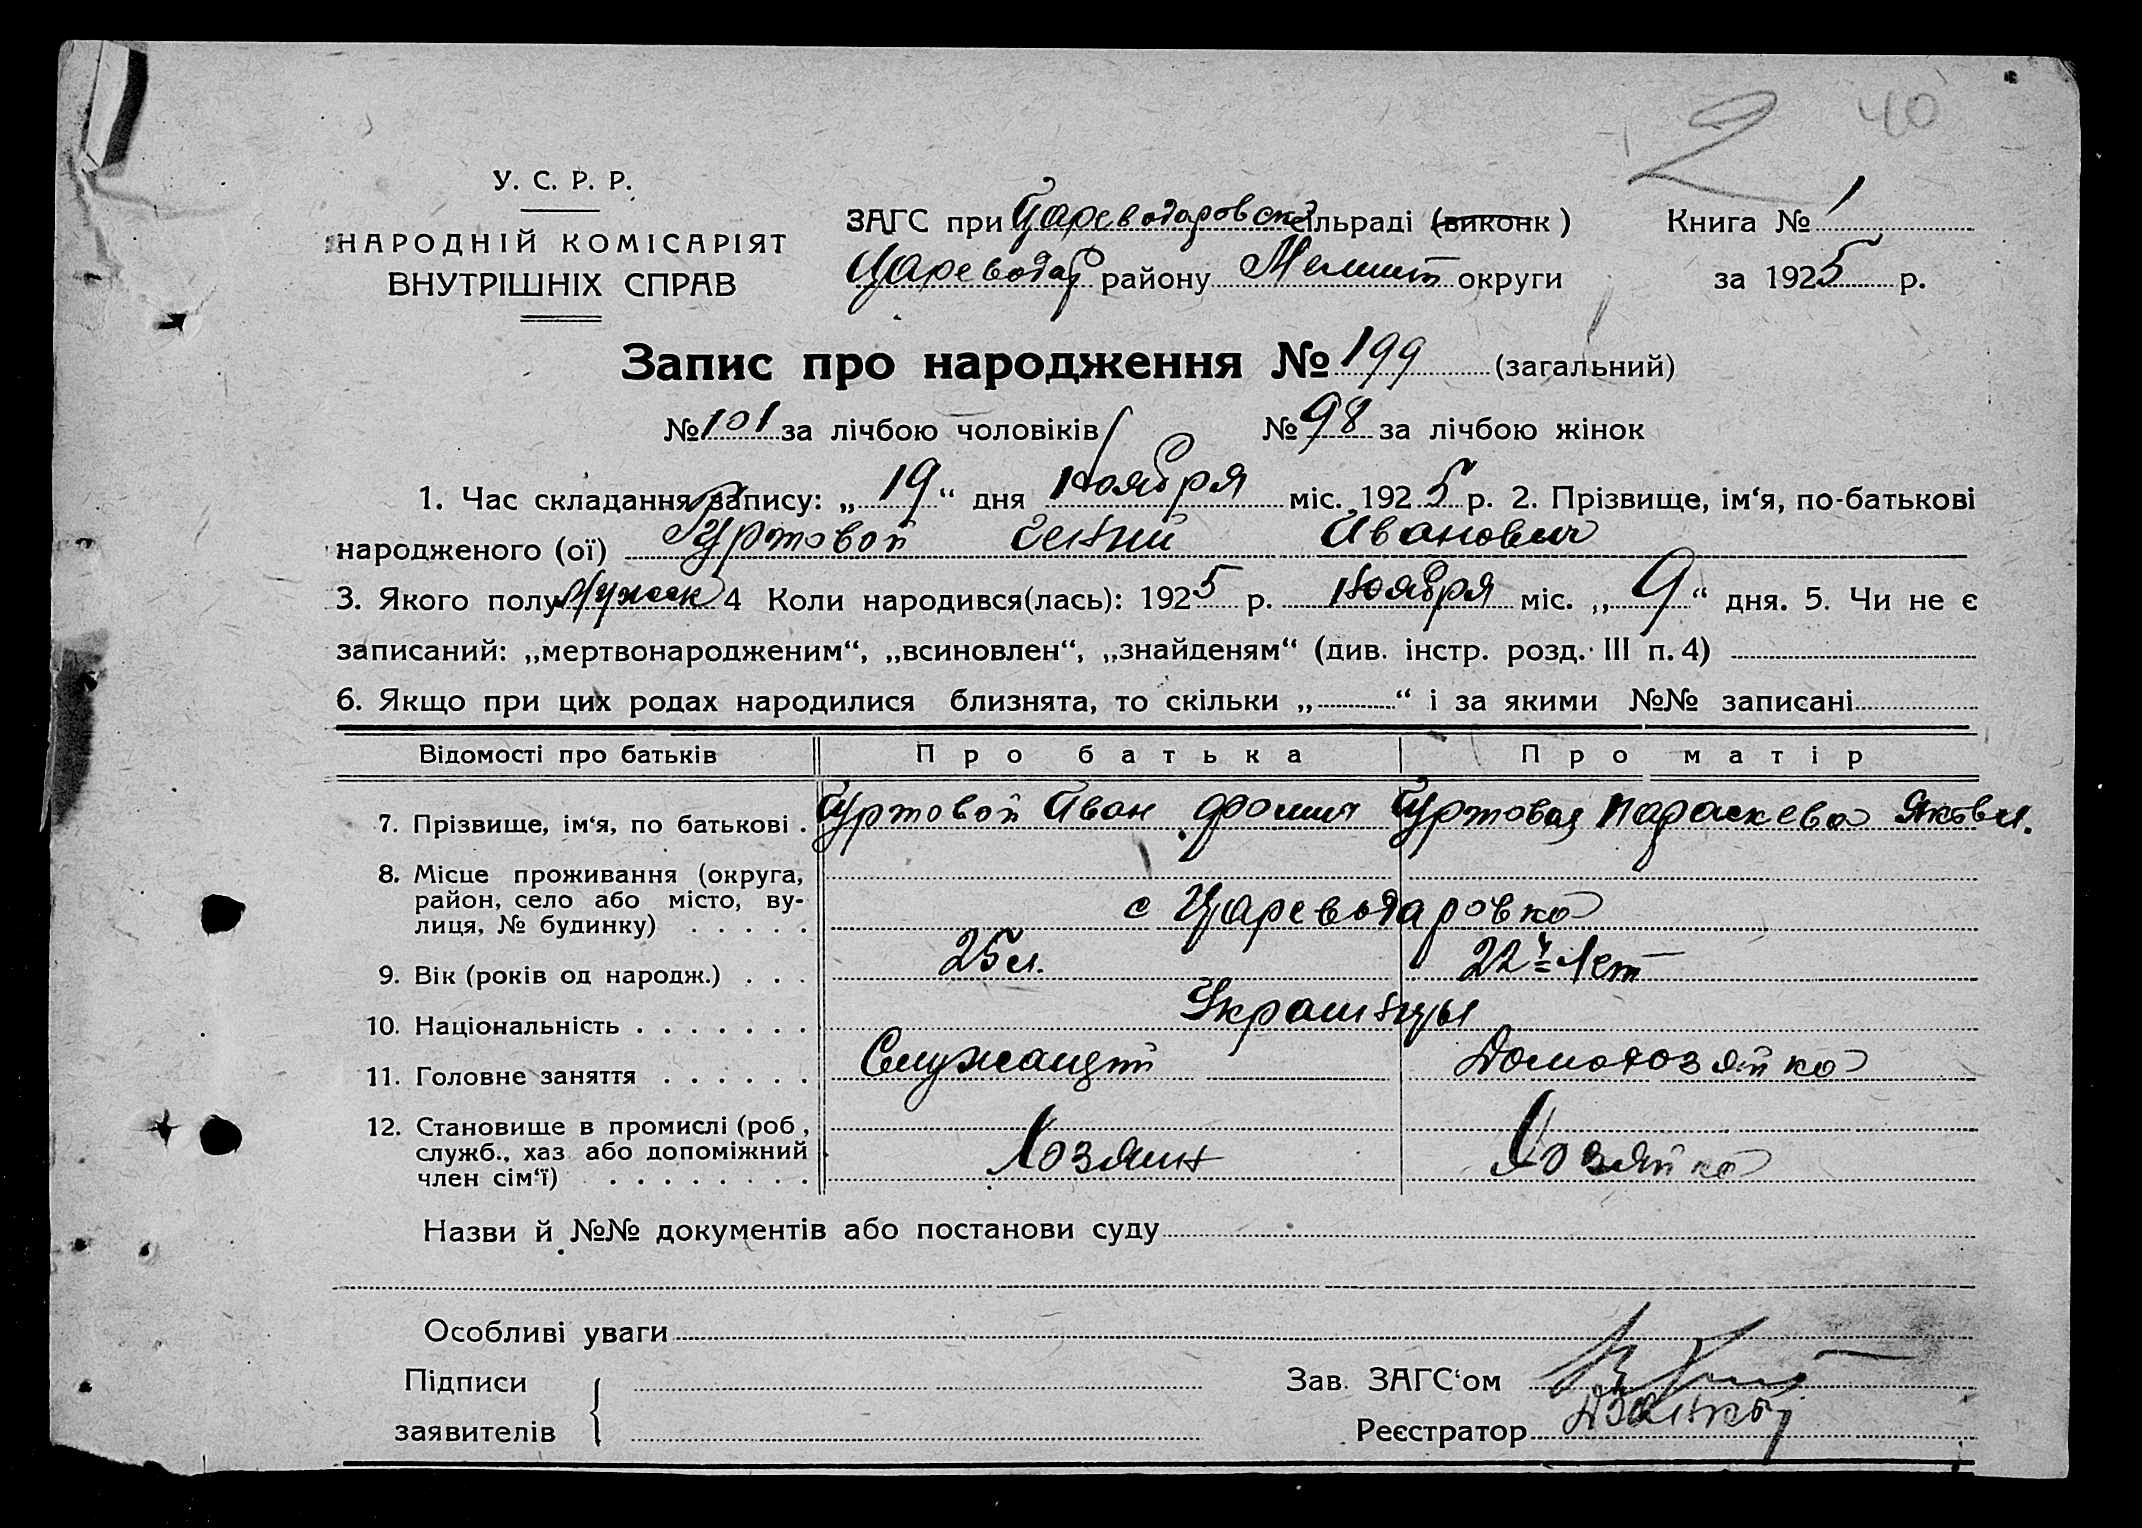 2 40
У. С. Р. Р.
НАРОДНІЙ КОМІСАРІЯТ
ВНУТРІШНІХ СПРАВ
ЗАГС при Цареводаровск сільраді (виконк )
Книга № 1
Цареводар району Мелит округи
за 1925 р.
Запис про народження № 199 (загальний)
№ 101 за лічбою чоловіків № 98 за лічбою жінок
1. Час складання запису: „ 19 “ дня Ноября міс. 1925 р. 2. Прізвище, ім‘я, по-батькові
народженого (ої) Гуртовой Иванович
3. Якого полу Мужск 4 Коли народився(лась): 1925 р. Ноября міс. „ 9 “ дня. 5. Чи не є
записаний: „мертвонародженим“, „всиновлен“, „знайденям“ (див. інстр. розд. III п. 4)
6. Якщо при цих родах народилися близнята, то скільки „ “ і за якими №№ записані
Відомості про батьків Про батька Про матір
7. Прізвище, ім‘я, по батькові . Гуртовой Иван Фомич Гуртовая Параскева Яковл.
8. Місце проживання (округа,
район, село або місто, ву-
лиця, № будинку) . . . . .
с Цареводаровка
9. Вік (років од народж.) . . . 25 л. 22 Лет
10. Національність . . . . . . . Украинцы
11. Головне заняття . . . . . . Служащий Домохозяйка
12. Становище в промислі (роб ,
служб., хаз або допоміжний
член сім‘ї) . . . . . . . .
Хозяин Хозяйка
Назви й №№ документів або постанови суду
Особливі уваги
Підписи
заявителів
Зав. ЗАГС‘ом
Реєстратор